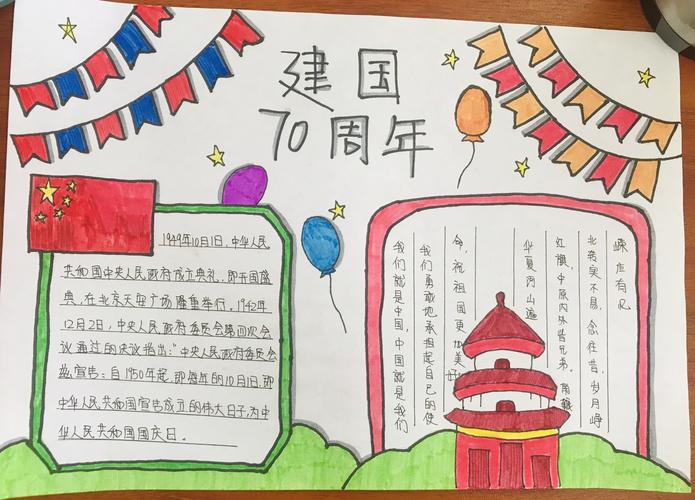 建国
70周年
1949年10月1日,中华人民
共和国中央人民政府成立典礼,即开国盛
典,在北京天安广场隆重举行。1942年
12月2日,中央人民政府委员会第四次会
议通过的决议指出:"中央人民政府委员会
宣告:自1950年起,即每年的10月1日,即
中华人民共和国宣告成立的伟大日子,为中
华人民共和国国庆日。
应有见
北 实不易,念往昔,岁月峥
红旗,中原内外皆兄弟。
华夏河山遍
命,祝祖国更加美好
我们勇敢地承担起自己的使
我们就是中国,中国就是我们